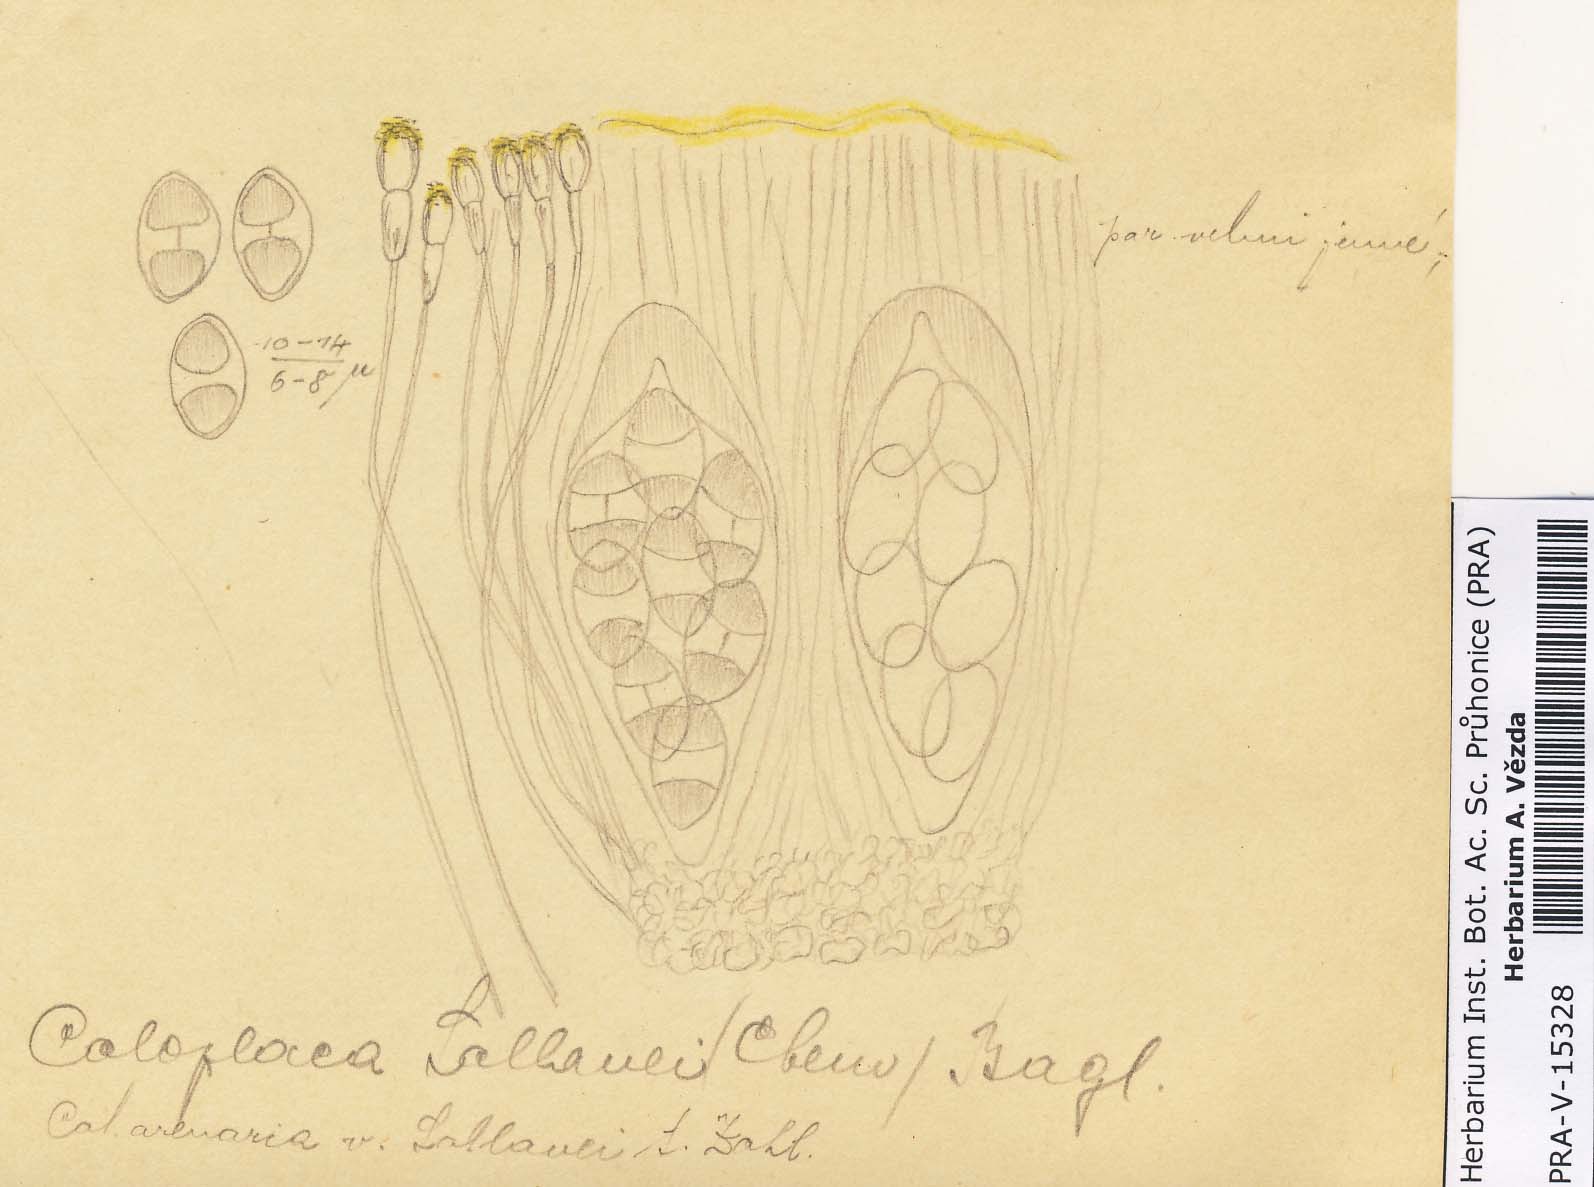 par. velmi jemné,
10-14
6-8 µ
Caloplaca Lallavei /Clem/ Bagl.
Cal. arenaria v. Lallavei f. Zahl.
Herbarium Inst. Bot. Ac. Sc. Průhonice (PRA)
Herbarium A. Vězda
PRA-V-15328